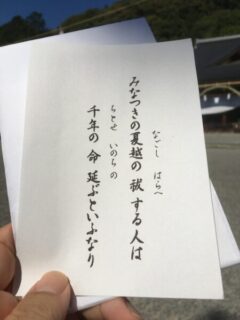 みなつきの夏越の祓する人は
なごし はらへ
千年の命延ぶといふなり
ちとせ いのちの